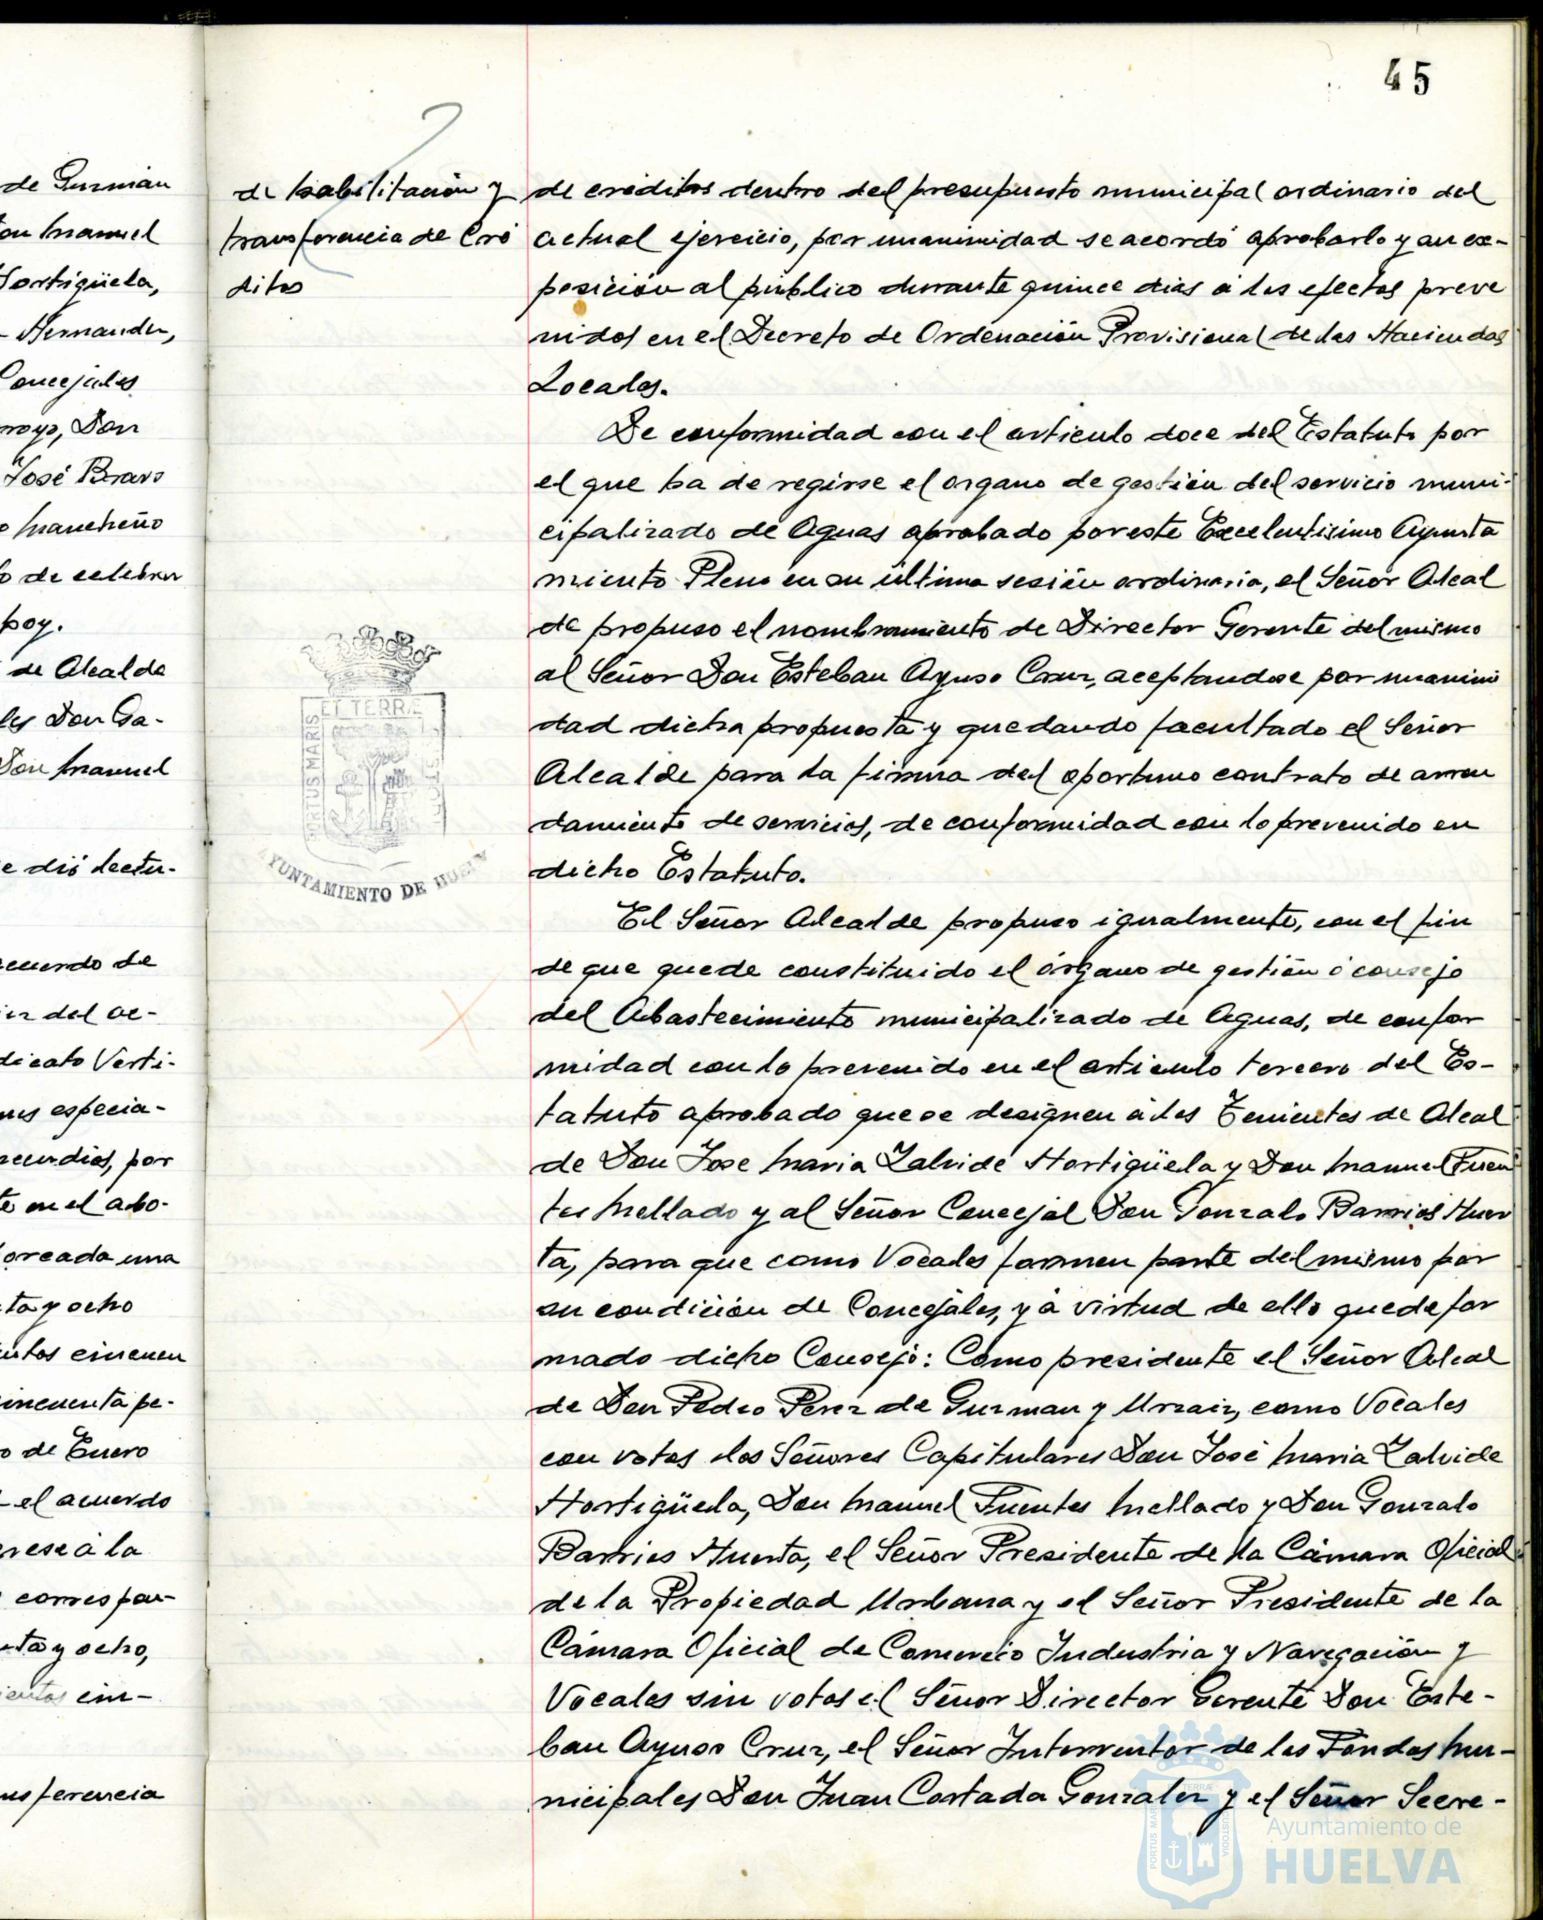 45
de Guzmán
Don Manuel
Hortigüela,
Hernandez,
Concejales
Don
José Bravo
Mancheño
de celebrar
hoy.
de Alcalde
Don Ga-
Don Manuel
e dió lectu-
acuerdo de
del ac-
dicato Verti-
especia-
por
en el abo-
una
ta y ocho
cincuen
cincuenta pe-
o de Enero
el acuerdo
a la
correspon-
ta y ocho,
cin-
nsferencia
de habilitación y
transferencia de Cré
ditos
ET TERRÆ
PORTUS MARIS
AYUNTAMIENTO DE HUELVA
de créditos dentro del presupuesto municipal ordinario del
actual ejercicio, por unanimidad se acordó aprobarlo y su ex-
posición al público durante quince dias á los efectos preve
nidos en el Decreto de Ordenación Provisional de las Haciendas
Locales.
De conformidad con el articulo doce del Estatuto por
el que ha de regirse el organo de gestión del servicio muni-
cipalizado de Aguas aprobado por este Excelentisimo Ayunta
miento Pleno en su última sesión ordinaria, el Señor Alcal
de propuso el nombramiento de Director Gerente del mismo
al Señor Don Esteban Ayuso Cruz, aceptandose por unanimi
dad dicha propuesta y quedando facultado el Señor
Alcalde para la firma del oportuno contrato de arren
damiento de servicios, de conformidad con lo prevenido en
dicho Estatuto.
El Señor Alcalde propuso igualmente, con el fin
de que quede constituido el órgano de gestión ó consejo
del Abastecimiento municipalizado de Aguas, de confor
midad con lo prevenido en el articulo tercero del Es-
tatuto aprobado que se designen á los Tenientes de Alcal
de Don Jose Maria Zalvide Hortigüela y Don Manuel Fuen
tes Mellado y al Señor Concejal Don Gonzalo Barrios Huer
ta, para que como Vocales formen parte del mismo por
su condición de Concejales, y á virtud de ello quede for
mado dicho Consejo: Como presidente el Señor Alcal
de Don Pedro Perez de Guzman y Urzaiz, como Vocales
con votos los Señores Capitulares Don José Maria Zalvide
Hortigüela, Don Manuel Fuentes Mellado y Don Gonzalo
Barrios Huerta, el Señor Presidente de la Cámara Oficial
de la Propiedad Urbana y el Señor Presidente de la
Cámara Oficial de Comercio Industria y Navegación y
Vocales sin votos el Señor Director Gerente Don Este-
ban Ayuso Cruz, el Señor Interventor de los Fondos Mu-
nicipales Don Juan Cortada Gonzalez y el Señor Secre-
Ayuntamiento de
HUELVA